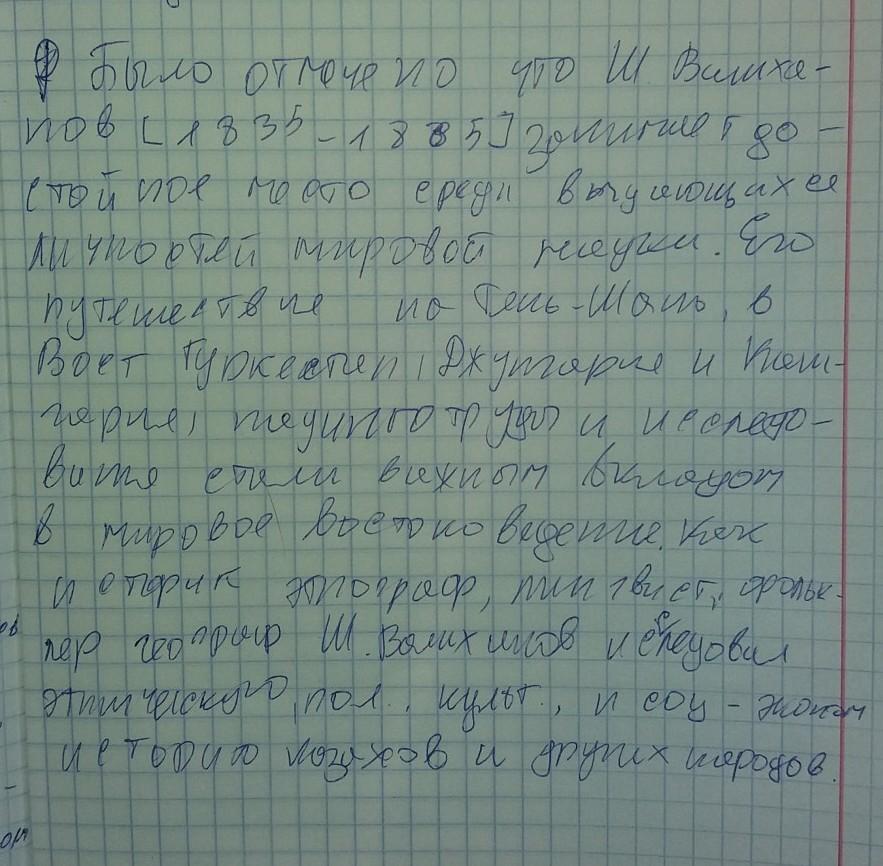 Было отмечено что Ш. Валиха-
нов [1835-1865] занимает до-
стойное место среди выдающихся
личностей мировой науки. Его
путешествие по Тянь-Шань, в
Вост Туркестан, Джунгария и Каш-
гария, научно труды и исследо-
вания стали важным вкладом
в мировое востоковедение. Как
историк этнограф, лингвист, фольк-
лер географ Ш. Валиханов исследовал
этнического, пол., культ., и соц-эконом
историю казахов и других народов.